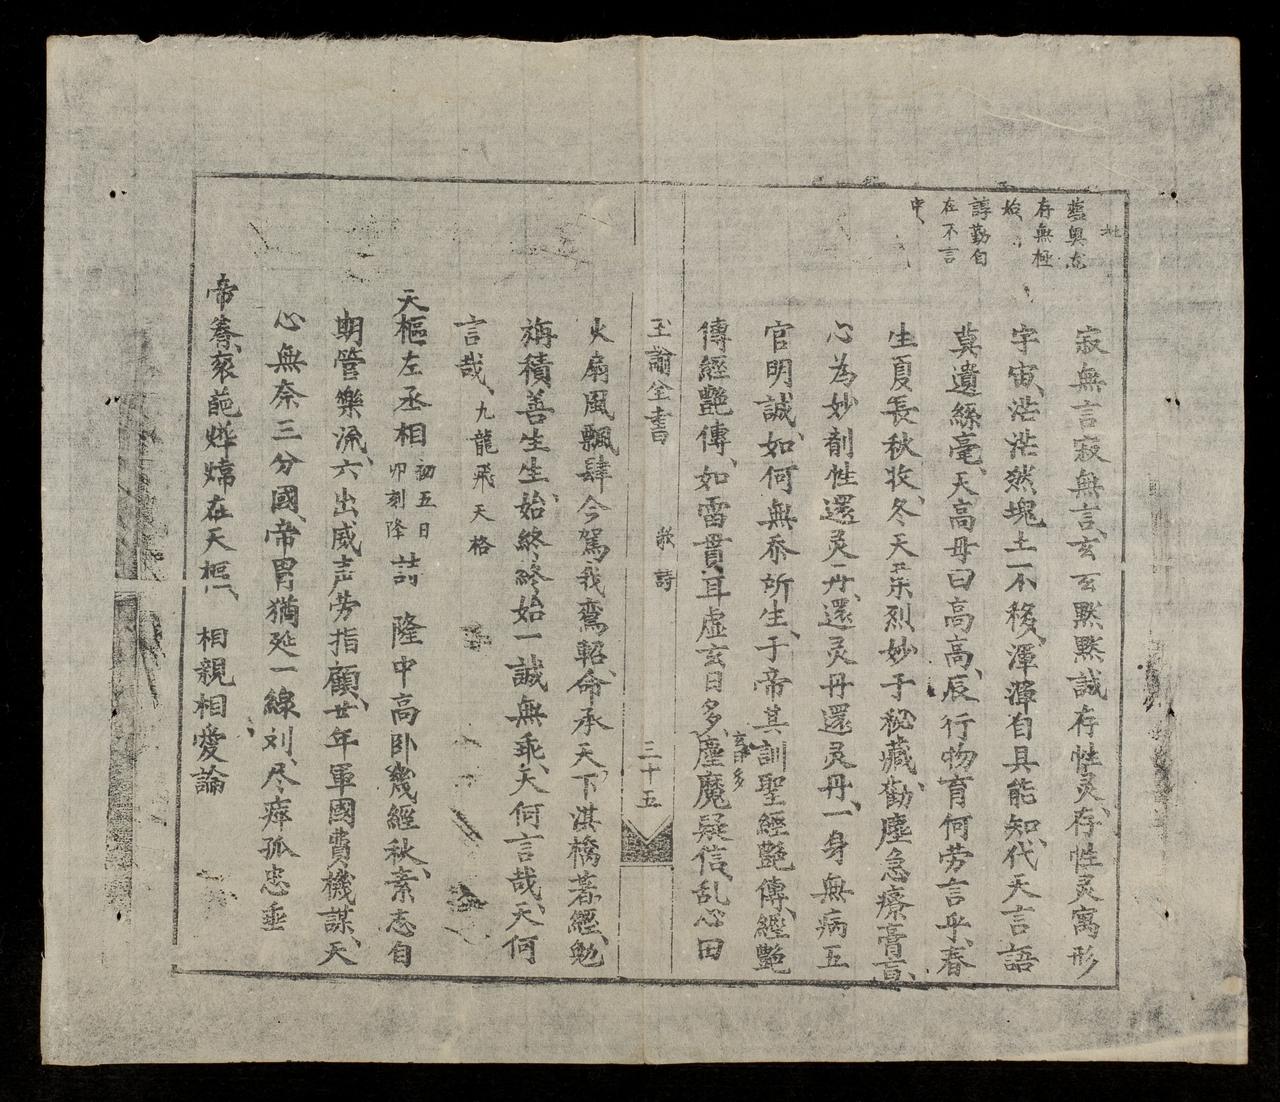 奥玄
存無極
始
諄勤自
在不言
中
寂無言寂無言、玄玄默默誠存性灵、存性灵寓形
宇宙、茫茫然塊土不移、渾渾自具能知、代天言語
莫遺絲毫、天高毋曰高高、辰行物育何劳言乎、春
生夏長秋收、冬天栗烈妙于秘藏、勸塵急療膏肓、
心為妙剤性還灵丹、還灵丹還灵丹、一身無病五
官明、誠如何無忝所生、于帝其訓聖經艷傳、經艷
傳經艷傳、如雷貫耳虚玄日多、塵魔疑信、乱心田
玉諭全書
歌 詩
三十五
火扇風飄肆今駕我鸞軺、命承天下淇橋著經、勉
旃積善生生、始終終始一誠無乖、天何言哉、天何
言哉、九龍飛天格
天樞左丞相 初五日
卯刻降 詩 隆中高卧幾經秋、素志自
期管樂流、六出威声劳指顧、廿年軍國費機謀、天
心無奈三分國、帝胃猶延一線刘、尽瘁孤忠垂
帝 褒 在天樞、 相親相愛論